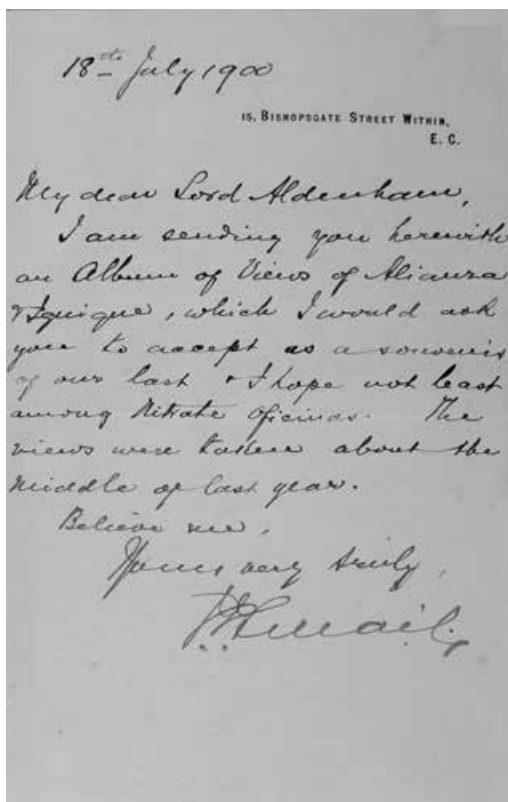 18th July 1900
15, BISHOPSGATE STREET WITHIN,
E. C.
My dear Lord Aldenham,
I am sending you herewith
an Album of Views of Alianza
& Iquique, which I would ask
you to accept as a souvenir
of our last & I hope not least
among Nitrate Oficinas. The
views were taken about the
middle of last year.
Believe me,
Yours very truly,